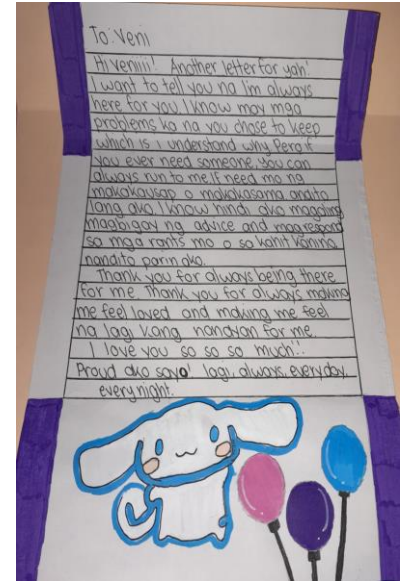 To: Veni
Hi veniiii! Another letter for yah!
I want to tell you na I'im always
here for you. I know may mga
problems ka na you chose to keep
which is i understand why. Pero if
you ever need someone, you can
always run to me. If need mo ng
makakausap o makakasama andito
lang ako. I know hindi ako magaling
magbigay ng advice and magrespond
sa mga rants mo o sa kahit kanino
nandito parin ako.
Thank you for always being there
for me. Thank you for always making
me feel loved and making me feel
na lagi kang nandyan for me.
I love you so so so much!!
Proud ako sayo lagi, always, everyday,
every night.